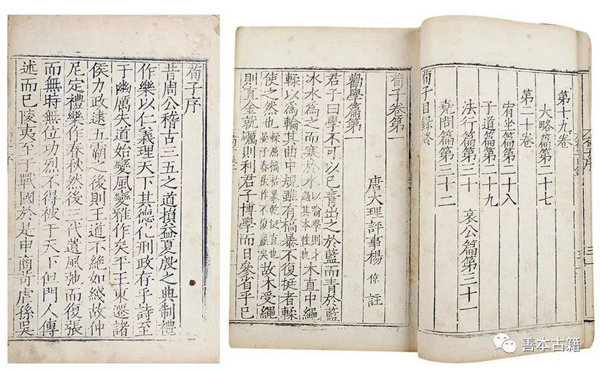 荀子序
昔周公稽古三五之道損益夏殷之典制禮
作樂以仁義理天下其德化刑政存乎詩至
于幽厲失道始變風變雅作矣平王東遷諸
侯力政逮五霸之後則王道不絕如綫故仲
尼定禮樂作春秋然後三代遺風弛而復張
而無時無位功烈不得被于天下但門人傳
述而已陵夷至于戰國於是申商苛虐孫吳
第十九卷
大略篇第二十七
第二十卷
宥坐篇第二十八
子道篇第二十九
法行篇第三十 哀公篇第三十一
堯問篇第三十二
荀子目録終
荀子卷第一
唐大理評事楊 倞 註
勸學篇第一
君子曰學不可以已青出之於藍而青於藍
冰水為之而寒於水以喻學則才過其本性也木直中繩
輮以為輪其曲中規雖有槁暴不復挺者輮
使之然也故木受繩
則直金就礪則利君子博學而日參省乎己
善本古籍